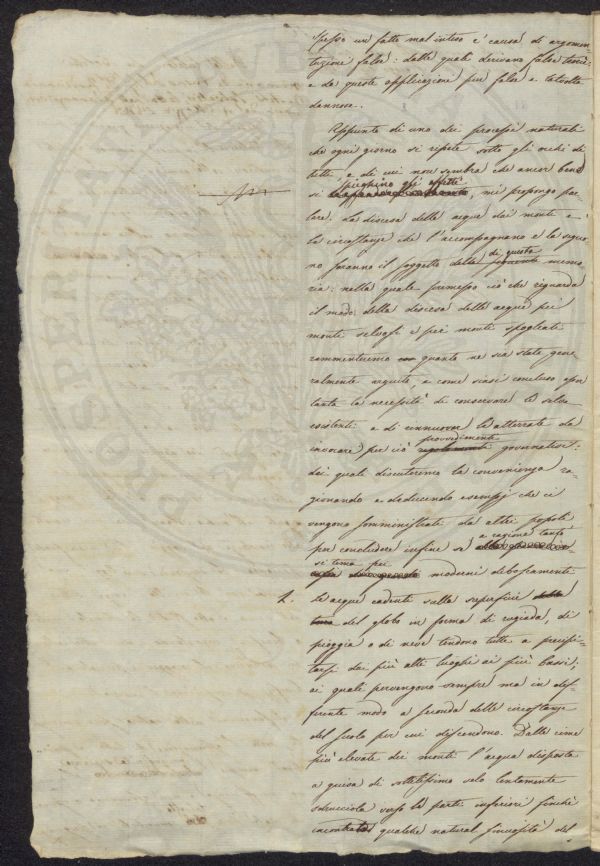 spesso un fatto mal inteso è causa di argomen-
tazione false: dalle quali derivano false teorie
e da queste applicazioni più false e talvolta
dannose.
Appunto di uno dei processi naturali
che ogni giorno si ripete sotto gli occhi di
tutti, e di cui non sembra che ancor bene
si spieghino gli effetti, mi propongo par-
lare. La discesa delle acque dai monti e
le circostanze che l'accompagnano e la seguo
no faranno il soggetto della di questa memo
ria: nella quale premesso ciò che riguarda
il modo della discesa delle acque pei
monti selvosi e pei monti spogliati
rammenteremo quanto ne sia stato gene
ralmente arguito, e come siasi concluso
tanto la necessità di conservare le selve
esistenti e di rinnuovare le atterrate da
invocare per ciò provvedimenti governativi:
dei quali discuteremo la convenienza ra-
gionando e deducendo esempj che ci
vengono somministrati da altri popoli
per concludere infine se a ragione tanto
si tema pei moderni diboscamenti
2. Le acque cadenti sulla superficie
del globo in forma di rugiada, di
pioggia o di neve tendono tutte a precipi-
tarsi dai più alti luoghi ai più bassi;
ai quali pervengono sempre ma in dif-
ferente modo a seconda delle circostanze
del suolo per cui discendono. Dalle cime
più elevate dei monti l'acqua disposta
a guisa di sottilissimo velo lentamente
sdrucciola verso le parti inferiori finchè
incontrato qualche natural sinuosità del
PROSPERITÀ